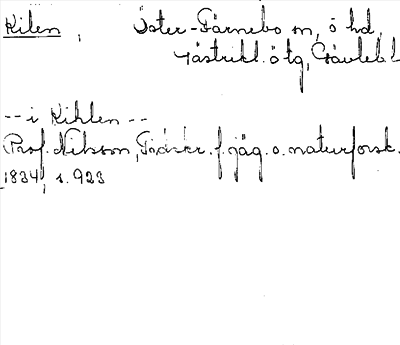 Kilen, Öster-Färnebo sn, ö hd,
Gästrikl. ö tg, Gävleb l
-- i Kihlen --
Prof. Nilsson, Tidskr. f. jäg. o. naturforsk.
1834, s. 923